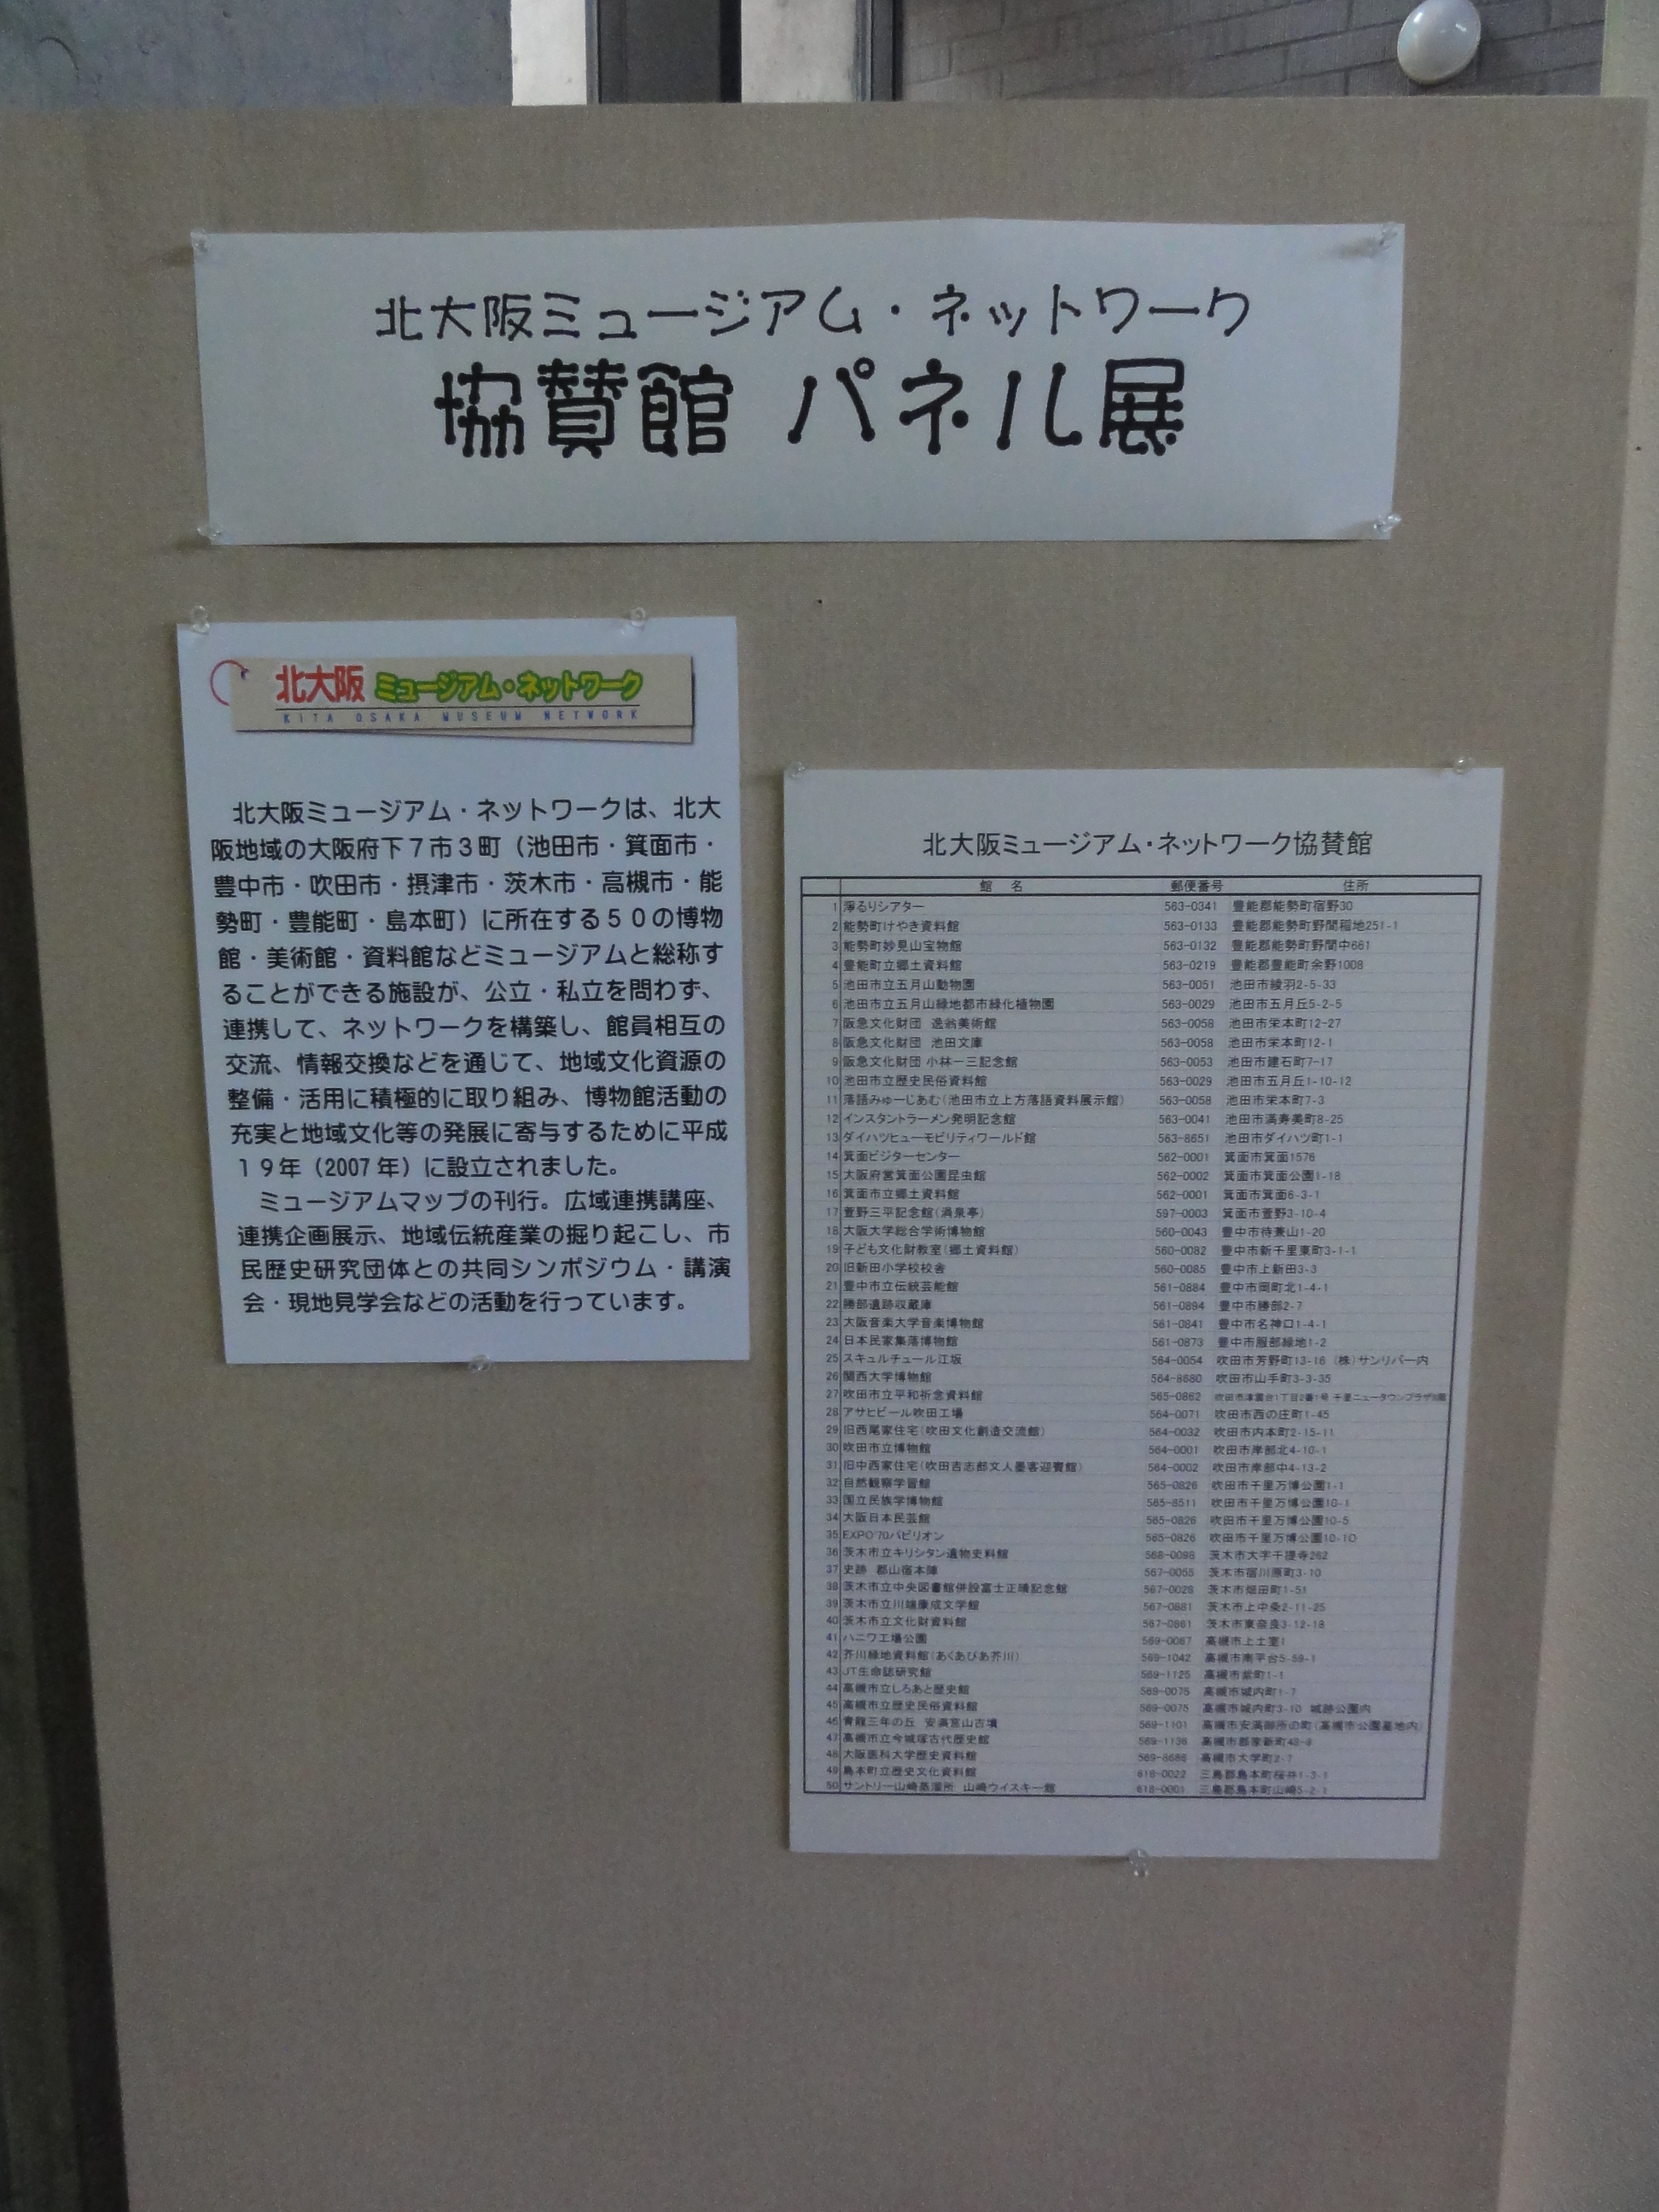 北大阪ミュージアム・ネットワーク
協賛館 パネル展
北大阪 ミュージアム・ネットワーク
KITA OSAKA MUSEUM NETWORK
北大阪ミュージアム・ネットワークは、北大
阪地域の大阪府下7市3町（池田市・箕面市・
豊中市・吹田市・摂津市・茨木市・高槻市・能
勢町・豊能町・島本町）に所在する50の博物
館・美術館・資料館などミュージアムと総称す
ることができる施設が、公立・私立を問わず、
連携して、ネットワークを構築し、館員相互の
交流、情報交換などを通じて、地域文化資源の
整備・活用に積極的に取り組み、博物館活動の
充実と地域文化等の発展に寄与するために平成
19年（2007年）に設立されました。
ミュージアムマップの刊行。広域連携講座、
連携企画展示、地域伝統産業の掘り起こし、市
民歴史研究団体との共同シンポジウム・講演
会・現地見学会などの活動を行っています。
北大阪ミュージアム・ネットワーク協賛館
館 名 郵便番号 住所
1 浄るりシアター 563-0341 豊能郡能勢町宿野30
2 能勢町けやき資料館 563-0133 豊能郡能勢町野間稲地251-1
3 能勢町妙見山宝物館 563-0132 豊能郡能勢町野間中661
4 豊能町立郷土資料館 563-0219 豊能郡豊能町余野1008
5 池田市立五月山動物園 563-0051 池田市綾羽2-5-33
6 池田市立五月山緑地都市緑化植物園 563-0029 池田市五月丘5-2-5
7 阪急文化財団 逸翁美術館 563-0058 池田市栄本町12-27
8 阪急文化財団 池田文庫 563-0058 池田市栄本町12-1
9 阪急文化財団 小林一三記念館 563-0053 池田市建石町7-17
10 池田市立歴史民俗資料館 563-0029 池田市五月丘1-10-12
11 落語みゅーじあむ(池田市立上方落語資料展示館) 563-0058 池田市栄本町7-3
12 インスタントラーメン発明記念館 563-0041 池田市満寿美町8-25
13 ダイハツヒューモビリティワールド館 563-8651 池田市ダイハツ町1-1
14 箕面ビジターセンター 562-0001 箕面市箕面1576
15 大阪府営箕面公園昆虫館 562-0002 箕面市箕面公園1-18
16 箕面市立郷土資料館 562-0001 箕面市箕面6-3-1
17 萱野三平記念館(涓泉亭) 597-0003 箕面市萱野3-10-4
18 大阪大学総合学術博物館 560-0043 豊中市待兼山1-20
19 子ども文化財教室(郷土資料館) 560-0082 豊中市新千里東町3-1-1
20 旧新田小学校校舎 560-0085 豊中市上新田3-3
21 豊中市立伝統芸能館 561-0884 豊中市岡町北1-4-1
22 勝部遺跡収蔵庫 561-0894 豊中市勝部2-7
23 大阪音楽大学音楽博物館 561-0841 豊中市名神口1-4-1
24 日本民家集落博物館 561-0873 豊中市服部緑地1-2
25 スキュルチュール江坂 564-0054 吹田市芳野町13-16 (株)サンリバー内
26 関西大学博物館 564-8680 吹田市山手町3-3-35
27 吹田市立平和祈念資料館 565-0862 吹田市津雲台1丁目2番1号 千里ニュータウンプラザ
28 アサヒビール吹田工場 564-0071 吹田市西の庄町1-45
29 旧西尾家住宅(吹田文化創造交流館) 564-0032 吹田市内本町2-15-11
30 吹田市立博物館 564-0001 吹田市岸部北4-10-1
31 旧中西家住宅(吹田吉志部文人墨客迎賓館) 564-0002 吹田市岸部中4-13-2
32 自然観察学習館 565-0826 吹田市千里万博公園1-1
33 国立民族学博物館 565-8511 吹田市千里万博公園10-1
34 大阪日本民芸館 565-0826 吹田市千里万博公園10-5
35 EXPO'70パビリオン 565-0826 吹田市千里万博公園10-10
36 茨木市立キリシタン遺物史料館 568-0098 茨木市大字千提寺262
37 史跡 郡山宿本陣 567-0055 茨木市宿川原町3-10
38 茨木市立中央図書館併設富士正晴記念館 567-0028 茨木市畑田町1-51
39 茨木市立川端康成文学館 567-0881 茨木市上中条2-11-25
40 茨木市立文化財資料館 567-0861 茨木市東奈良3-12-18
41 ハニワ工場公園 569-0067 高槻市上土室1
42 芥川緑地資料館(あくあぴあ芥川) 569-1042 高槻市南平台5-59-1
43 JT生命誌研究館 569-1125 高槻市紫町1-1
44 高槻市立しろあと歴史館 569-0075 高槻市城内町1-7
45 高槻市立歴史民俗資料館 569-0075 高槻市城内町3-10 城跡公園内
46 青龍三年の丘 安満宮山古墳 569-1101 高槻市安満御所の町(高槻市公園墓地内)
47 高槻市立今城塚古代歴史館 569-1136 高槻市郡家新町48-8
48 大阪医科大学歴史資料館 569-8686 高槻市大学町2-7
49 島本町立歴史文化資料館 618-0022 三島郡島本町桜井1-3-1
50 サントリー山崎蒸溜所 山崎ウイスキー館 618-0001 三島郡島本町山崎5-2-1